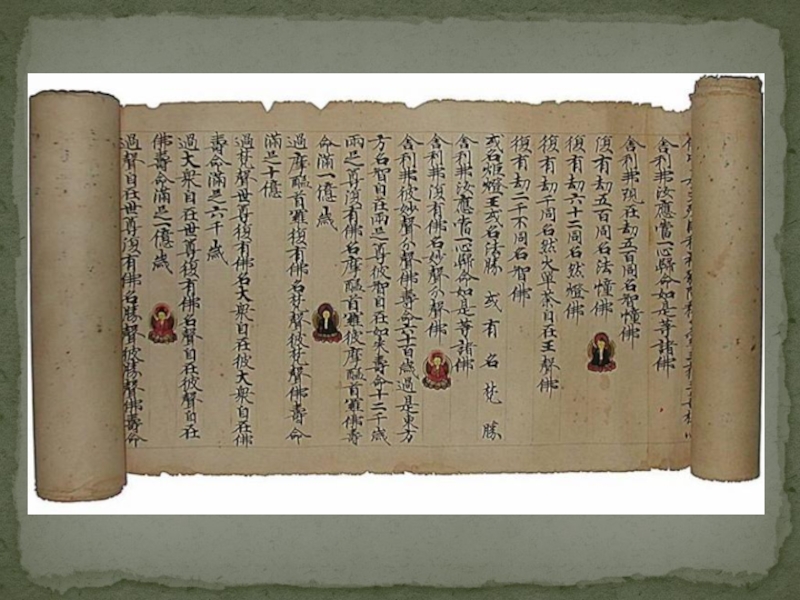 舍利弗汝應當一心歸命如是等諸佛
舍利弗現在劫五百同名智幢佛
復有劫五百同名法幢佛
復有劫六十二同名然燈佛
復有劫千同名然火單荼自在王聲佛
復有劫二千不同名智佛
或名炬燈王或名法勝 或有名梵勝
舍利弗汝應當一心歸命如是等諸佛
舍利弗復有佛名妙聲分聲佛
舍利弗彼妙聲分聲佛壽命六十百歲過是東方
方名智自在兩足尊彼智自在如來壽命十二千歲
兩足尊復有佛名摩醯首羅彼摩醯首羅佛壽
命滿一億歲
過摩醯首羅復有佛名梵聲彼梵聲佛壽命
滿足十億
過梵聲世尊復有佛名大衆自在彼大衆自在佛
壽命滿足六千歲
過大衆自在世尊復有佛名聲自在彼聲自在
佛壽命滿足一億歲
過聲自在世尊復有佛名勝聲彼勝聲佛壽命